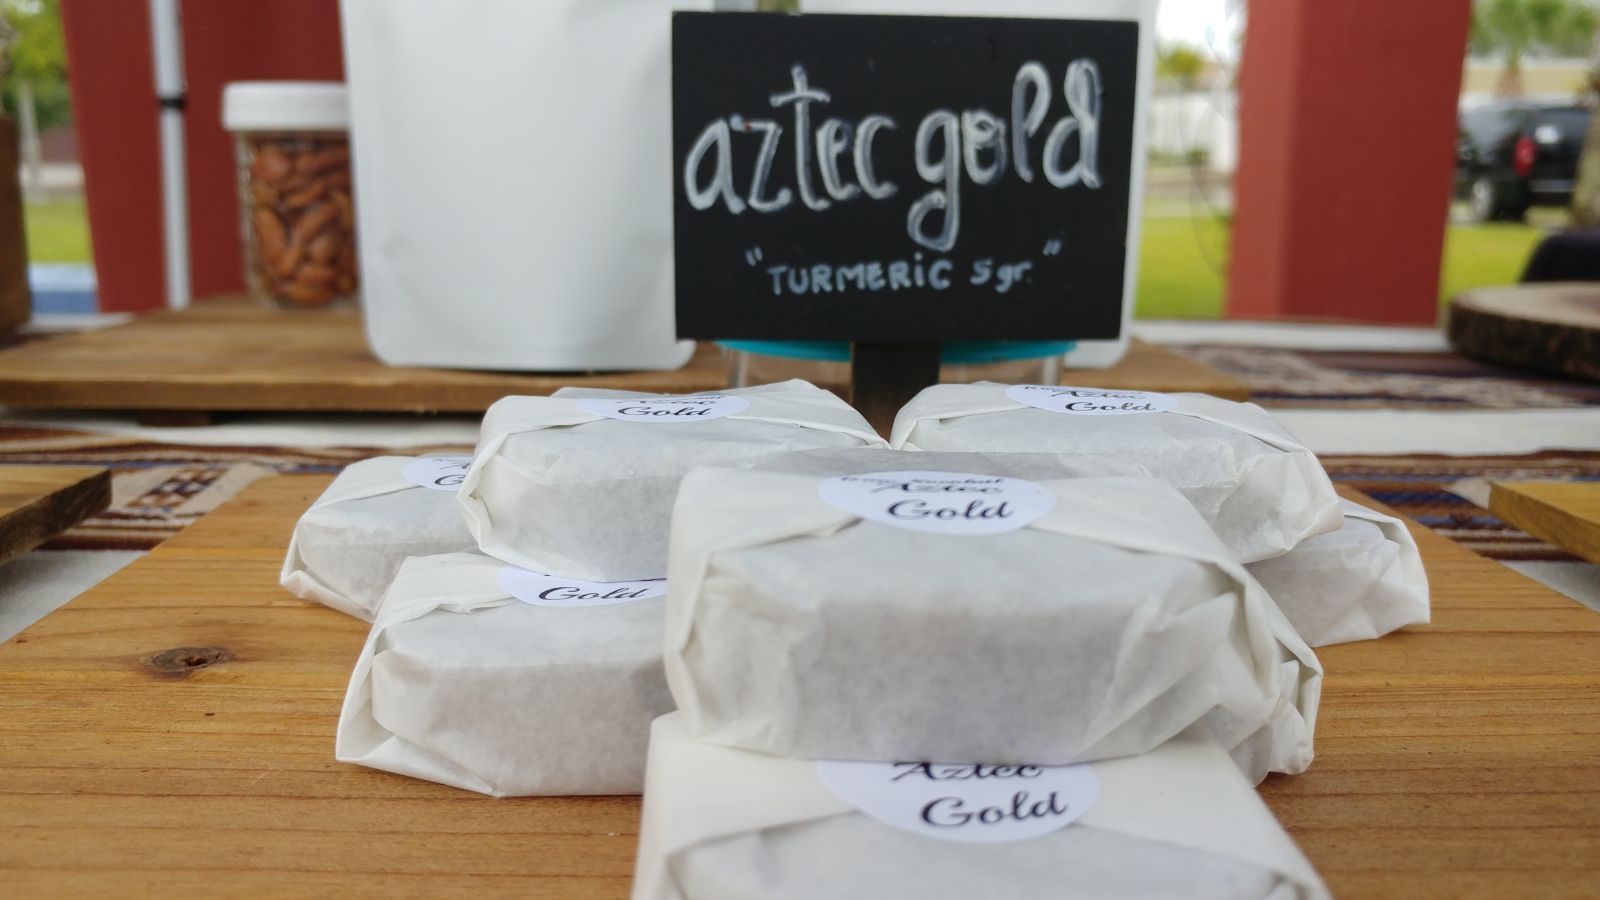 aztec gold
"TURMERIC 5gr."
Aztec
Gold
Aztec
Gold
Gold
Aztec
Gold
Aztec
Gold